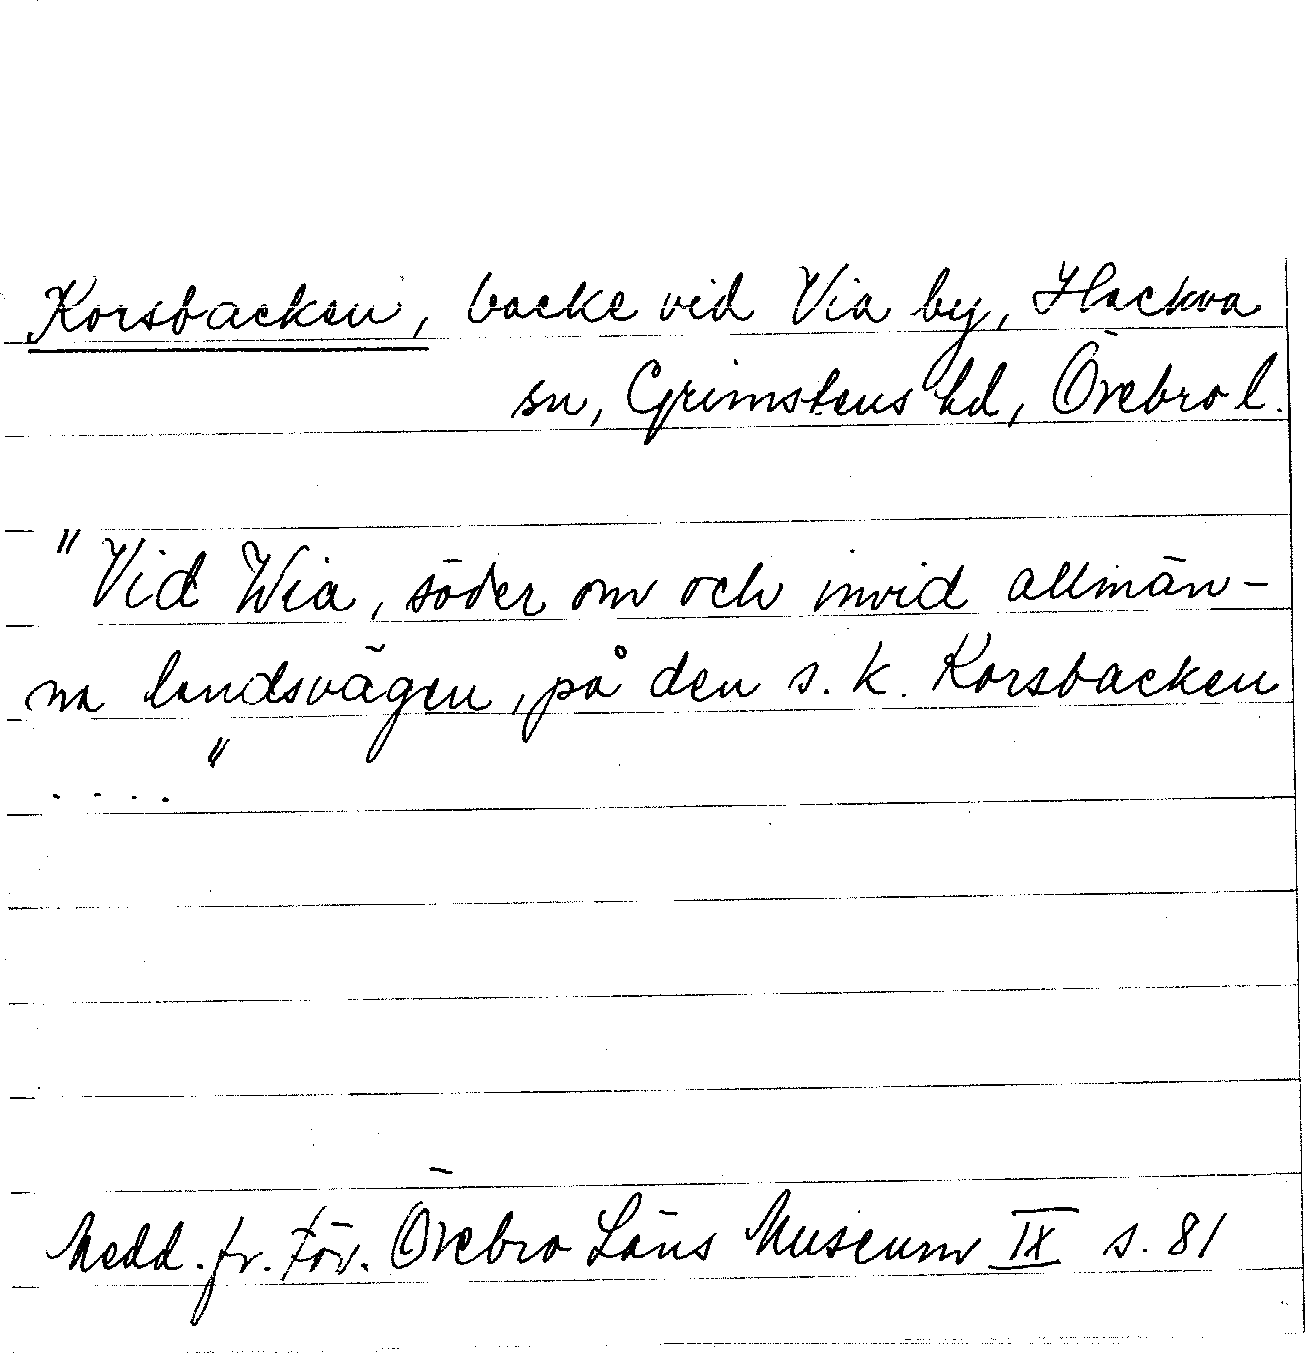 Korsbacken, backe vid Via by, Hackva
sn, Grimstens hd, Örebro l.
"Vid Wia, söder om och invid allmän-
na landsvägen, på den s. k. Korsbacken
...."
Medd. fr. För. Örebro Läns Museum IX s. 81